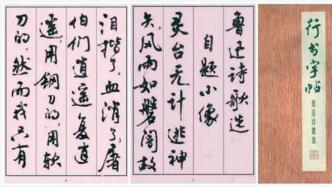 行书字帖
鲁迅诗歌选
鲁迅诗歌选
自题小像
灵台无计逃神
矢风雨如磐闇故
泪揩了,血消了,屠
伯们逍遥复逍
遥,用钢刀的,用软
刀的,然而我只有